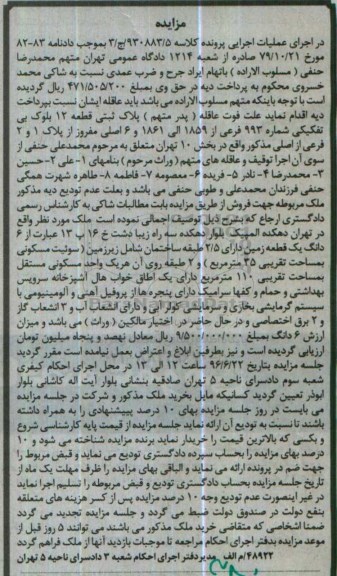 مزایده
در اجرای عملیات اجرایی پرونده کلاسه ۹۳۰۸۸۳/۵/ج/۳ بموجب دادنامه ۸۳-۸۲
مورخ ۷۹/۱۰/۲۱ صادره از شعبه ۱۲۱۴ دادگاه عمومی تهران متهم محمدرضا
حنفی ( مسلوب الاراده ) باتهام ایراد جرح و ضرب عمدی نسبت به شاکی محمد
خسروی محکوم به پرداخت دیه در حق وی بمبلغ ۴۷۱/۵۰۵/۲۰۰ ریال گردیده
است با توجه باینکه متهم مسلوب الاراده می باشد باید عاقله ایشان نسبت بپرداخت
دیه اقدام نماید علت فوت عاقله ( پدر متهم ) پلاک ثبتی قطعه ۱۲ بلوک بی
تفکیکی شماره ۹۹۳ فرعی از ۱۸۵۹ الی ۱۸۶۱ و ۶ اصلی مفروز از پلاک ۱ و ۲
فرعی از اصلی مذکور واقع در بخش ۱۰ تهران متعلق به مرحوم محمدعلی حنفی از
سوی آن اجرا توقیف و عاقله های متهم ( وراث مرحوم ) بنامهای ۱- علی ۲-حسین
۳- محمدرضا ۴- نادر ۵- فریده ۶- معصومه ۷- فاطمه ۸- طاهره شهرت همگی
حنفی فرزندان محمدعلی و طوبی حنفی می باشد و بعلت عدم تودیع دیه مذکور
ملک مربوطه جهت فروش از طریق مزایده بابت مطالبات شاکی به کارشناس رسمی
دادگستری ارجاع که بشرح ذیل توصیف اجمالی نموده است ملک مورد نظر واقع
در تهران دهکده المپیک بلوار دهکده سه راه زیبا دشت خ ۱۶ پ ۱۳ عبارت از ۶
دانگ یک قطعه زمین دارای ۲/۵ طبقه ساختمان شامل زیرزمین ( سوئیت مسکونی
بمساحت تقریبی ۳۵ مترمربع ) و ۲ طبقه روی آن هریک واحد مسکونی مستقل
بمساحت تقریبی ۱۱۰ مترمربع دارای یک اطاق خواب هال آشپزخانه سرویس
بهداشتی و حمام و کفها سرامیک دارای پنجره ها از پروفیل آهنی و آلومینیومی با
سیستم گرمایش بخاری و سرمایشی کولر آبی و دارای انشعاب آب و ۳ انشعاب گاز
و ۲ برق اختصاصی و در حال حاضر در اختیار مالکین ( وراث ) می باشد و میزان
ارزش ۶ دانگ بمبلغ ۹/۵۰۰/۰۰۰/۰۰۰ ریال معادل نهصد و پنجاه میلیون تومان
ارزیابی گردیده است و نیز بطرفین ابلاغ و اعتراض بعمل نیامده است مقرر گردید
جلسه مزایده بتاریخ ۹۶/۶/۲۲ ساعت ۱۲ الی ۱۳ در محل اجرای احکام کیفری
شعبه سوم دادسرای ناحیه ۵ تهران صادقیه بنشانی بلوار آیت اله کاشانی بلوار
ابوذر تعیین گردید کسانیکه مایل بخرید ملک مذکور و شرکت در جلسه مزایده
می بایست در روز جلسه مزایده بهای ۱۰ درصد پیپشنهادی را به همراه داشته
باشند تا نسبت به تودیع آن ارائه نماید جلسه مزایده از قیمت پایه کارشناسی شروع
و بکسی که بالاترین قیمت را خریدار نماید برنده مزایده شناخته می شود و ۱۰
درصد بهای مزایده را بحساب سپرده دادگستری تودیع می نماید و قبض مربوط را
جهت ضم در پرونده ارائه می نماید و الباقی بهای مزایده را ظرف مهلت یک ماه از
تاریخ جلسه مزایده بحساب دادگستری تودیع و قبض مربوطه را تسلیم اجرا نماید
در غیر اینصورت عدم تودیع وجه ۱۰ درصد مزایده پس از کسر هزینه های متعلقه
بنفع دولت در صندوق دولت ضبط می گردد و جلسه مزایده تجدید می گردد
ضمنا اشخاصی که متقاضی خرید ملک مذکور می باشند می توانند ۵ روز قبل از
موعد مزایده بدفتر اجرای احکام مراجعه تا موجبات بازدید آنها از ملک فراهم گردد
۴۸۹۲۲/م الف مدیر دفتر اجرای احکام شعبه ۳ دادسرای ناحیه ۵ تهران